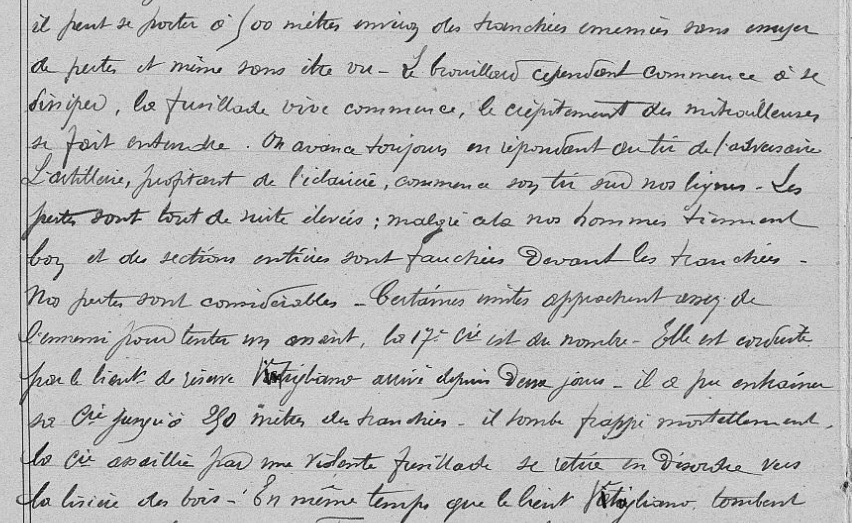 il peut se porter à 500 mètres environ des tranchées ennemies sans essuyer
de pertes et même sans être vu - Le brouillard cependant commence à se
dissiper, la fusillade vive commence, le crépitement des mitrailleuses
se fait entendre. On avance toujours en répondant au tir de l'adversaire
L'artillerie, profitant de l'éclaircie, commence son tir sur nos lignes - Les
pertes sont tout de suite élevées ; malgré cela nos hommes tiennent
bon et des sections entières sont fauchées devant les tranchées -
Nos pertes sont considérables - Certaines unités approchent assez de
l'ennemi pour tenter un assaut, la 17e Cie est du nombre - Elle est conduite
par le lieut. de réserve arrivé depuis deux jours - il a pu entraîner
sa Cie jusqu'à 250 mètres des tranchées - il tombe frappé mortellement,
la Cie assaillie par une violente fusillade se retire en désordre vers
la lisière des bois - En même temps que le lieut tombent